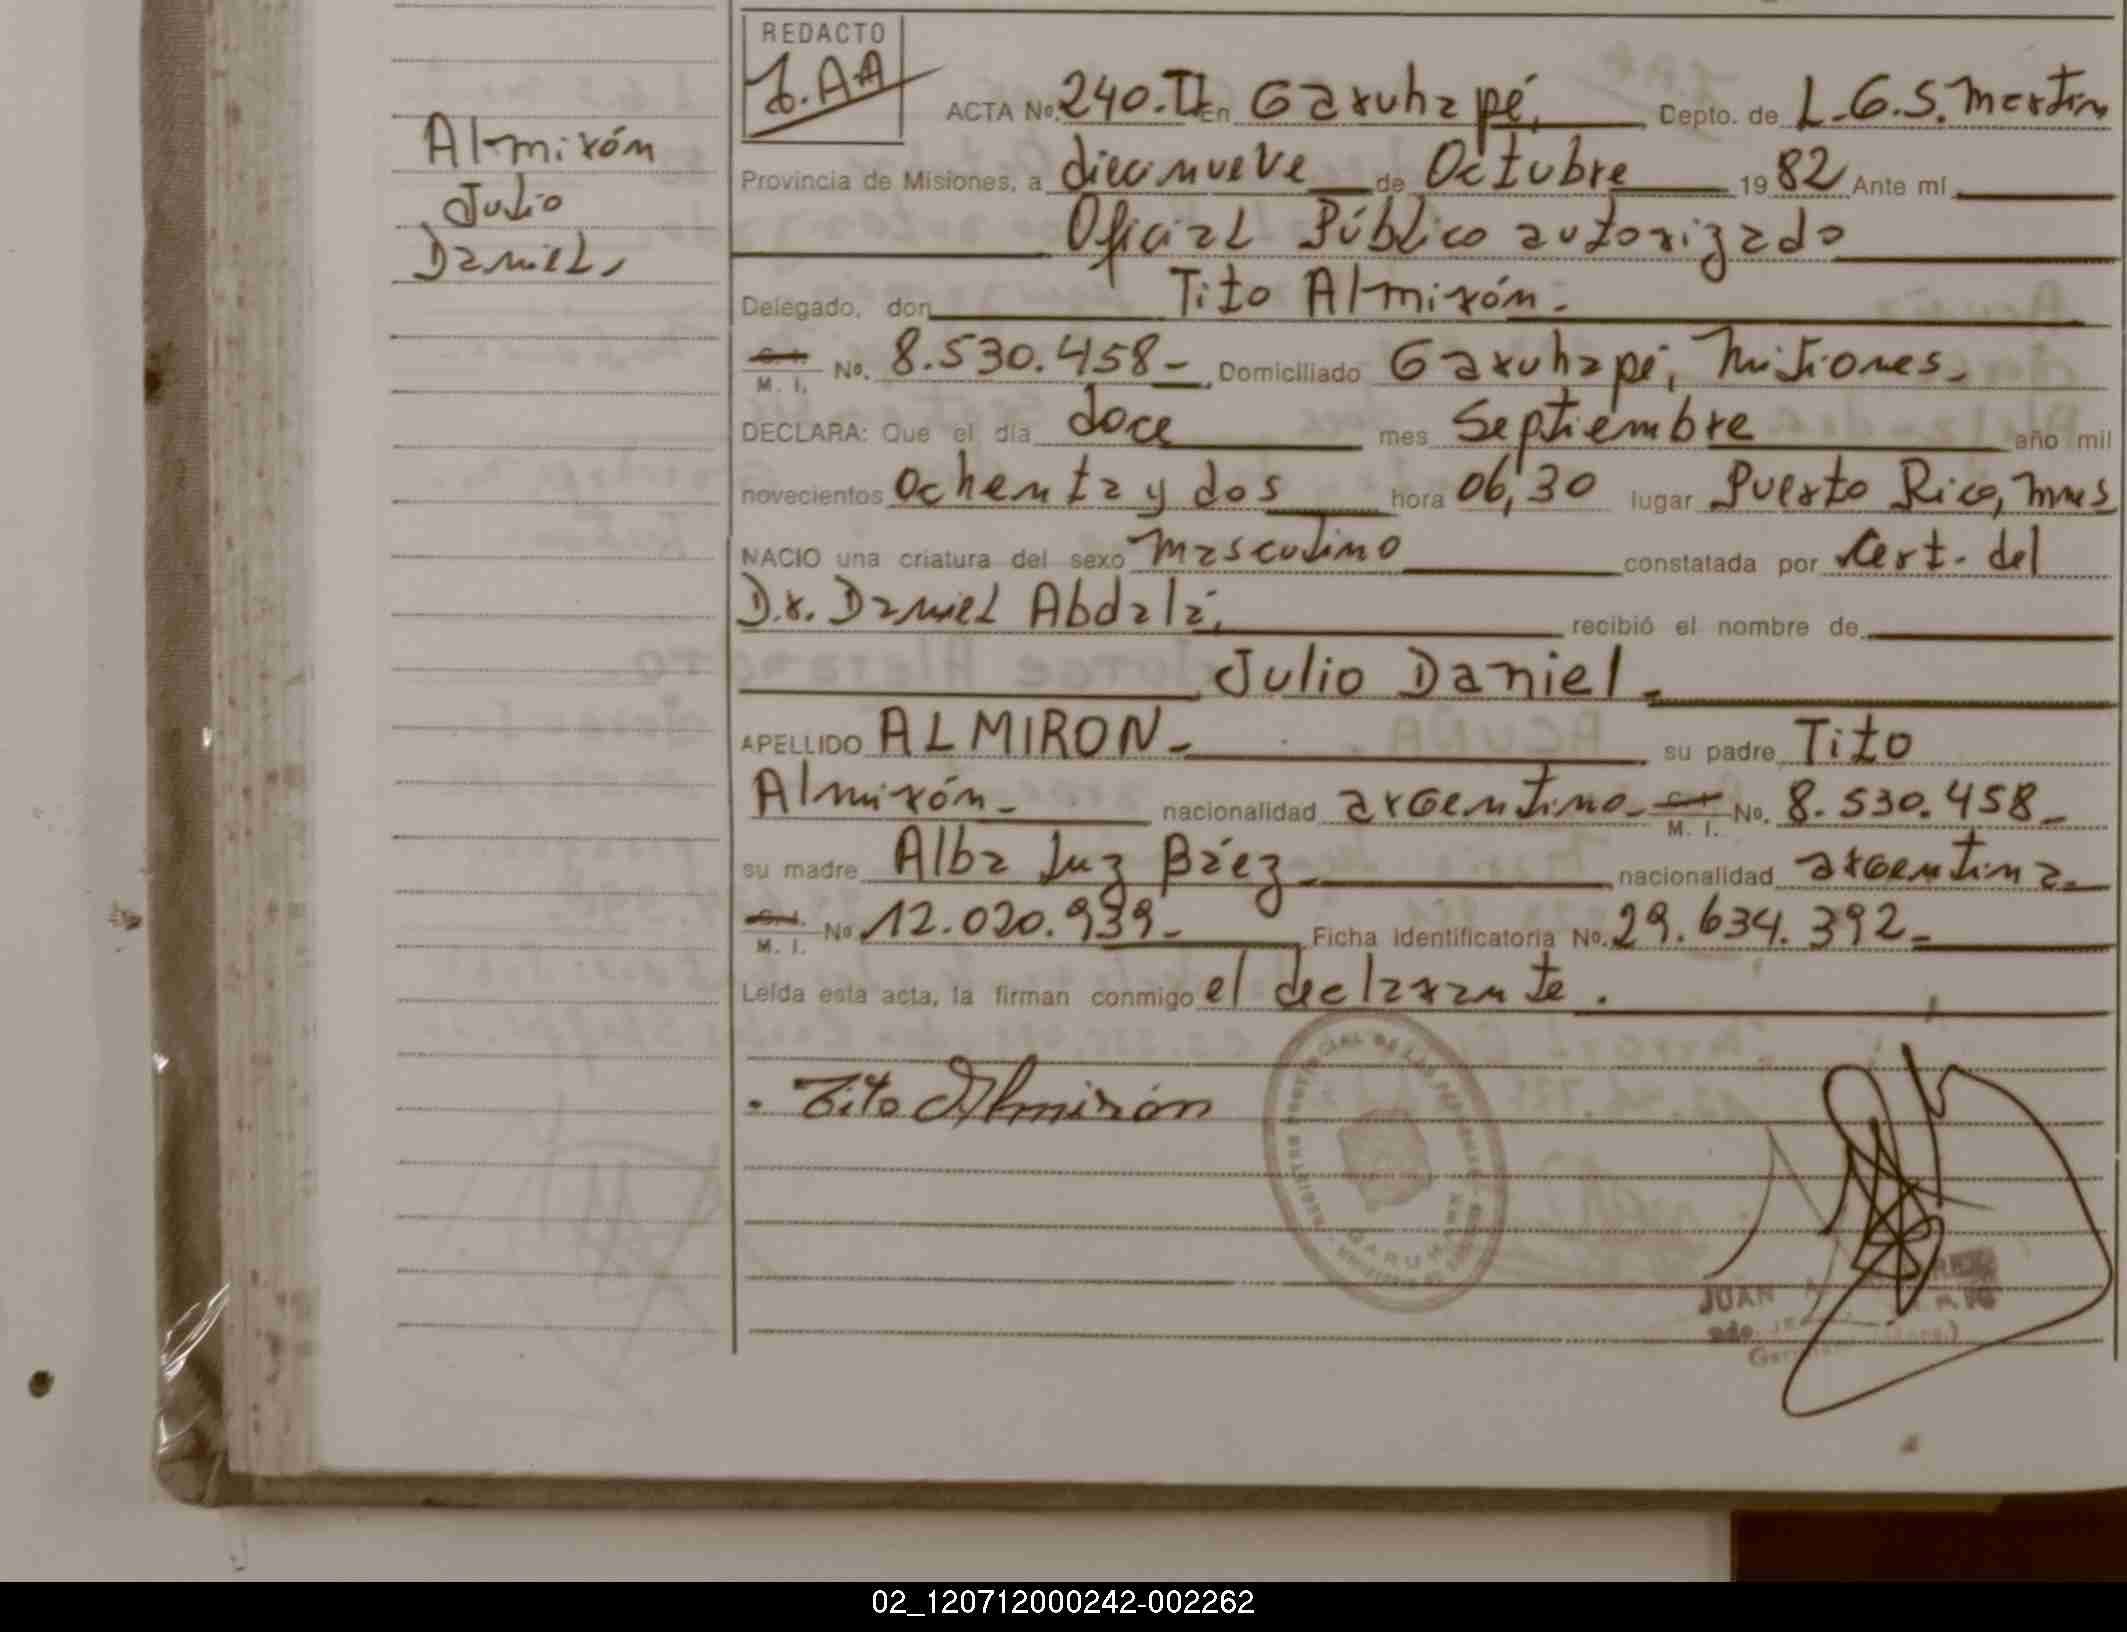 REDACTO
J.AA
ACTA No. 240.II En Garuhapé, Depto. de L.G.S. Martin
Almirón
Julio
Daniel,
Provincia de Misiones, a diecinueve de Octubre 1982 Ante mí
Oficial Público autorizado
Delegado, don Tito Almirón.
C. I. M. I. No. 8.530.458- Domiciliado Garuhapé, Misiones.
DECLARA: Que el día doce mes Septiembre año mil
novecientos ochenta y dos hora 06,30 lugar Puerto Rico, Mnes
NACIO una criatura del sexo masculino constatada por Cert. del
Dr. Daniel Abdala, recibió el nombre de
Julio Daniel.
APELLIDO ALMIRON- su padre Tito
Almirón- nacionalidad argentino- C. I. M. I. No. 8.530.458-
su madre Alba Luz Báez- nacionalidad argentina-
C. I. M. I. No 12.020.939- Ficha Identificatoria No. 29.634.392-
Leída esta acta, la firman conmigo el declarante.
Tito Almirón
GARUHAPE
JUAN
02_120712000242-002262